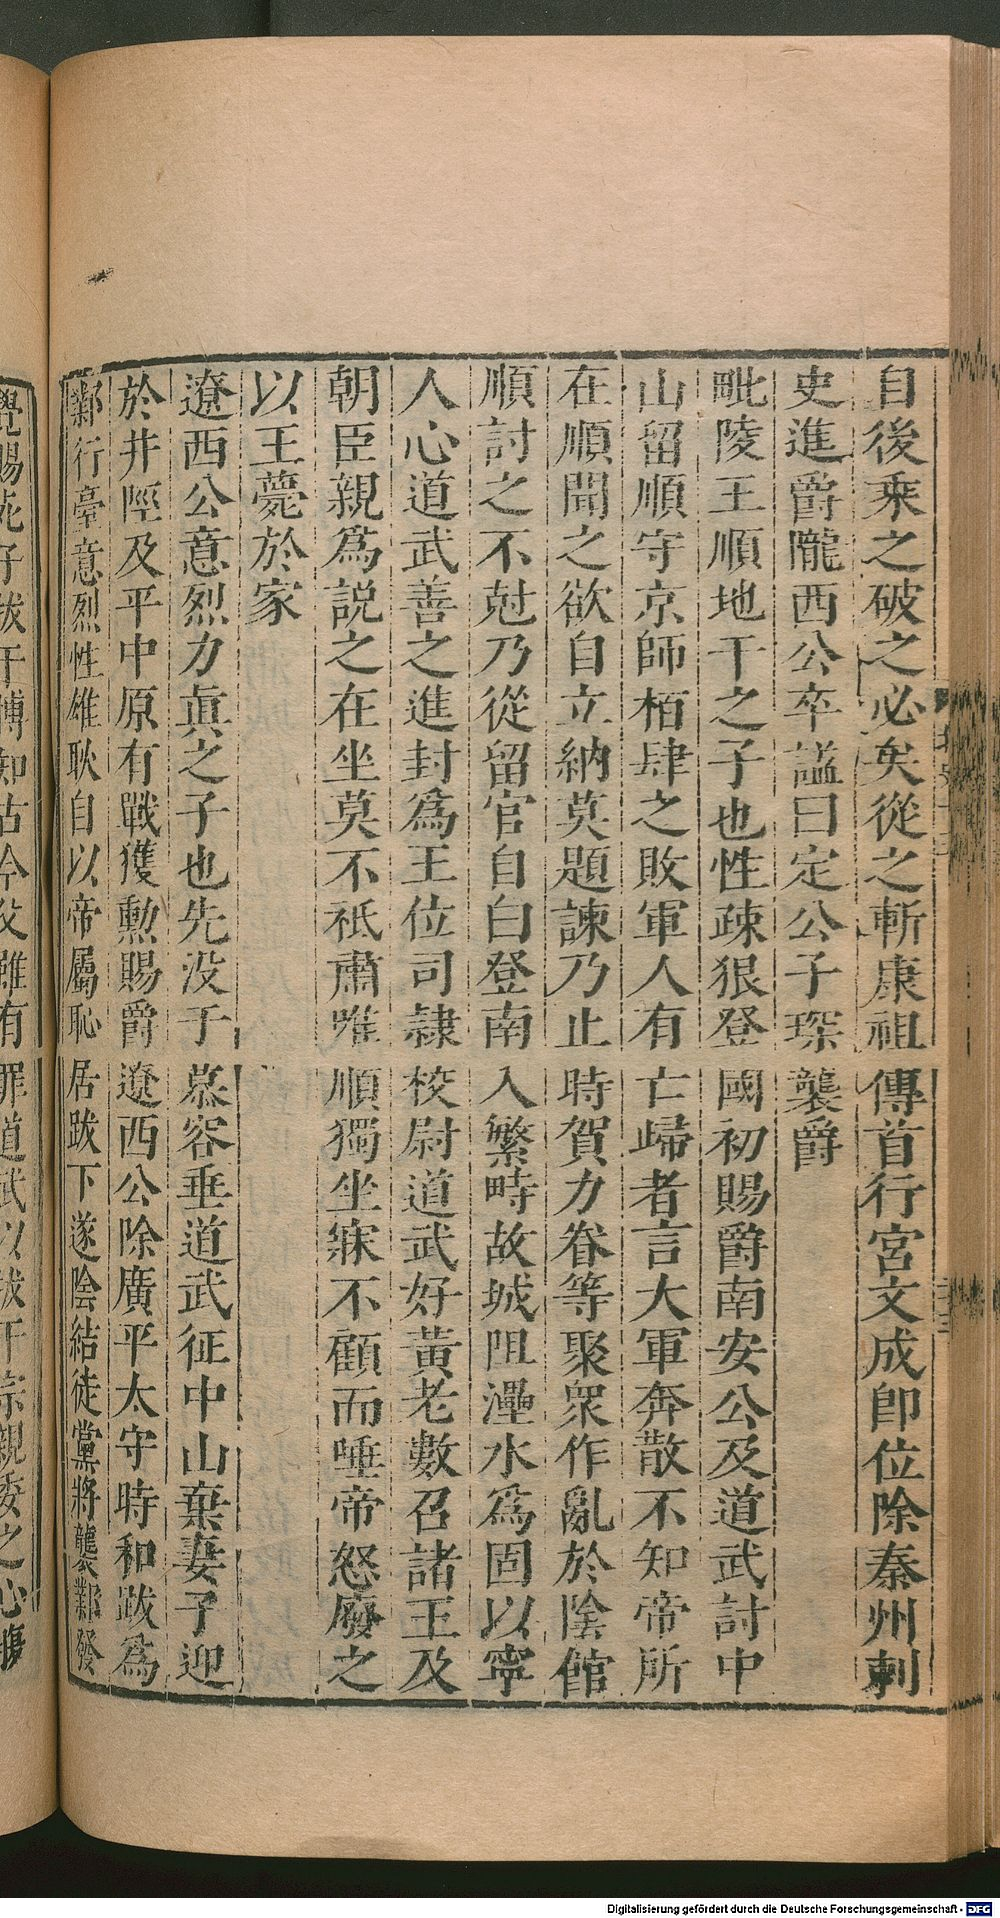 自後乘之破之必矣從之斬康祖傳首行宮文成卽位除秦州刺
史進爵隴西公卒謚曰定公子琛襲爵
毗陵王順地干之子也性疎狠登國初賜爵南安公及道武討中
山留順守京師栢肆之敗軍人有亡歸者言大軍奔散不知帝所
在順聞之欲自立納莫題諫乃止時賀力眷等聚衆作亂於陰館
順討之不尅乃從留官自白登南入繁畤故城阻灅水爲固以寧
人心道武善之進封爲王位司隷校尉道武好黃老數召諸王及
朝臣親爲説之在坐莫不祇肅唯順獨坐寐不顧而唾帝怒廢之
以王薨於家
遼西公意烈力眞之子也先没于慕容垂道武征中山棄妻子迎
於井陘及平中原有戰獲勲賜爵遼西公除廣平太守時和跋爲
鄴行臺意烈性雄耿自以帝屬恥居跋下遂陰結徒黨將襲鄴發
覺賜死子拔干博知古今父雖有罪道武以拔干宗親委之心腹
Digitalisierung gefördert durch die Deutsche Forschungsgemeinschaft - DFG